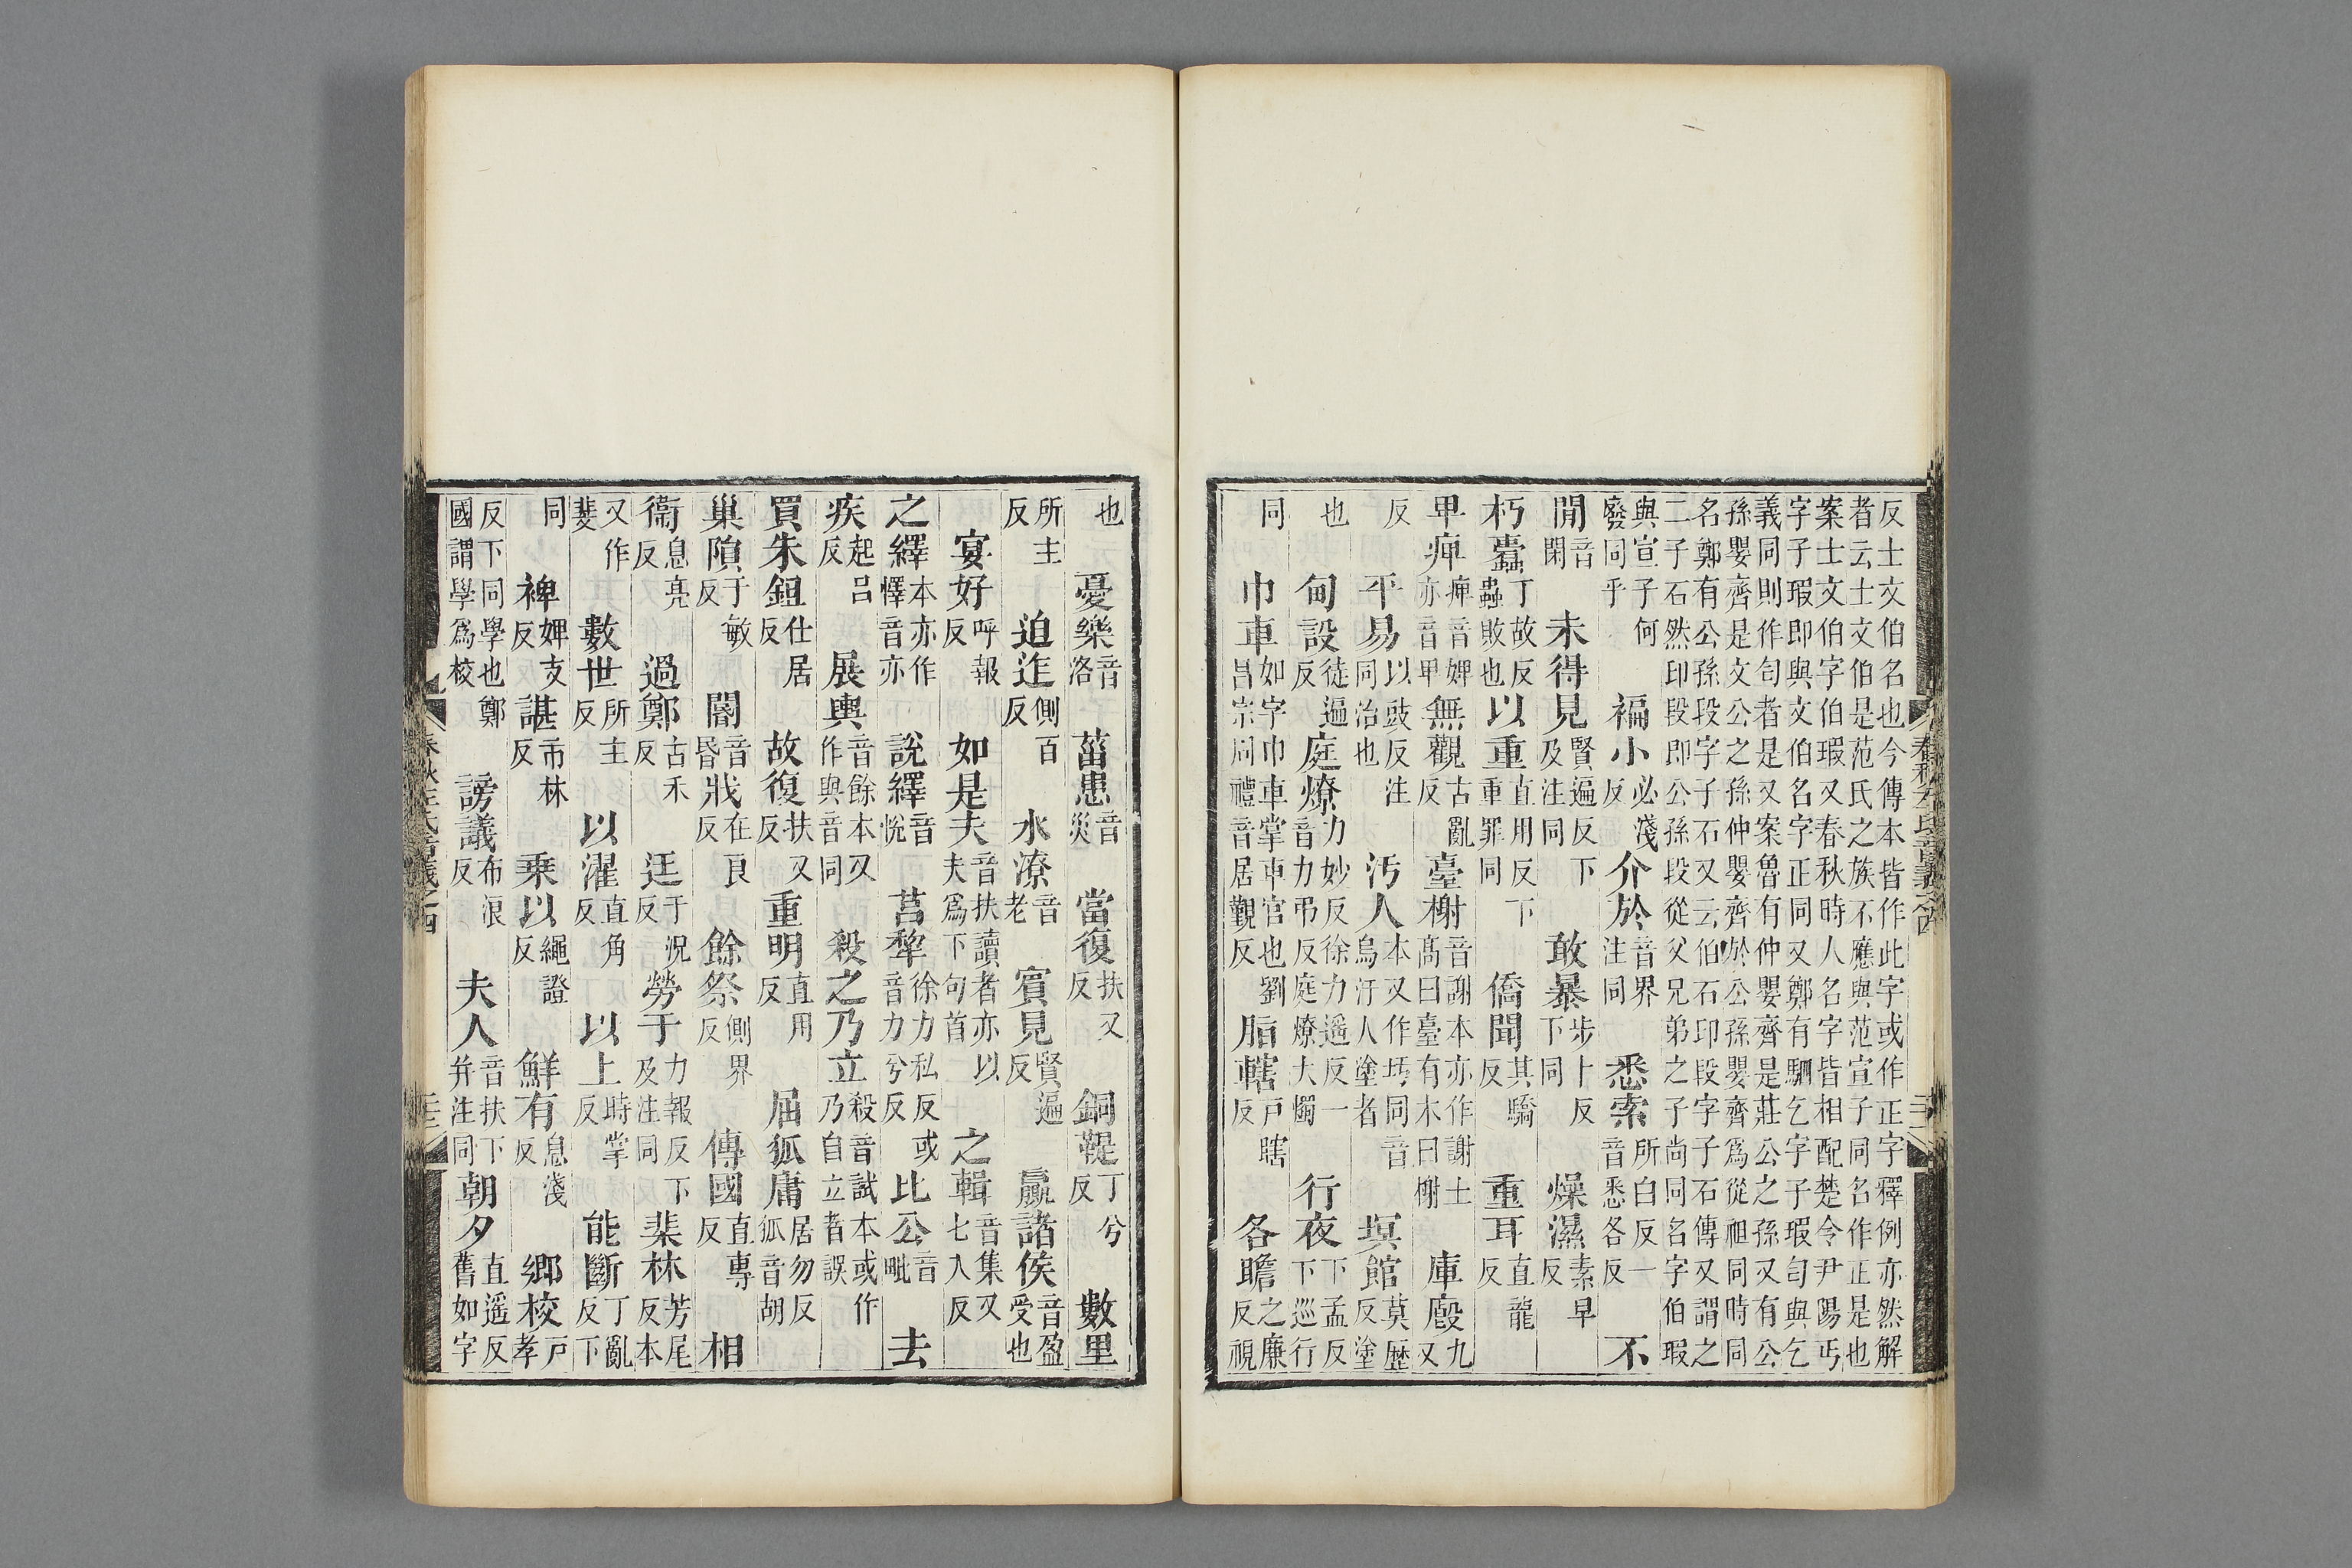 反士文伯名也今傳本皆作此字或作正字釋例亦然解
者云士文伯是范氏之族不應與范宣子同名作正是也
案士文伯字伯瑕又春秋時人名字皆相配楚令尹陽丐
字子瑕即與文伯名字正同又鄭有駟乞字子瑕匄與乞
義同則作匄者是又案魯有仲嬰齊是莊公之孫又有公
孫嬰齊是文公之孫仲嬰齊於公孫嬰齊爲從祖同時同
名鄭有公孫段字子石又云伯石印段字子石傳又謂之
二子石然印段即公孫段從父兄弟之子尚同名字伯瑕
與宣子何廢同乎 褊小必淺反 介於音界注同 悉索所白反一音悉各反 不
閒音閑 未得見賢遍反下及注同 敢暴步卜反下同 燥濕素早反
朽蠹丁故反蟲敗也 以重直用反下重罪同 僑聞其驕反 重耳直龍反
卑庳庳音婢亦音卑 無觀古亂反 臺榭音謝本亦作謝土高曰臺有木曰榭 庫廏九又
反 平易以豉反注同治也 汚人本又作汚同音烏汙人塗者 塓館莫歷反塗
也 甸設徒遍反 庭燎力妙反徐力遥反一音力弔反庭燎大燭 行夜下孟反下巡行
同 巾車如字巾車掌車官也劉昌宗周禮音居覲反 脂轄戸瞎反 各瞻之廉反視
春秋左氏音義之四
也 憂樂音洛 菑患音災 當復扶又反 銅鞮丁兮反 數里
所主反 迫迮側百反 水潦音老 賓見賢遍反 贏諸侯音盈受也
宴好呼報反 如是夫音扶讀者亦以夫爲下句首 之輯音集又七入反
之繹本亦作懌音亦 說繹音悅 莒犂徐力私反或音力兮反 比公音毗 去
疾起呂反 展輿音餘本又作與音同 殺之乃立殺音試本或作乃自立者誤
買朱鉏仕居反 故復扶又反 重明直用反 屈狐庸居勿反狐音胡
巢隕于敏反 閽音昏 戕在良反 餘祭側界反 傳國直專反 相
衞息亮反 過鄭古禾反 迋于況反 勞于力報反下及注同 棐林芳尾反本
又作斐 數世所主反 以濯直角反 以上時掌反 能斷丁亂反下
同 裨婢支反 諶市林反 乘以繩證反 鮮有息淺反 鄉校戸孝
反下同學也鄭國謂學爲校 謗議布浪反 夫人音扶下并注同 朝夕直遥反舊如字
春秋左氏音義之四